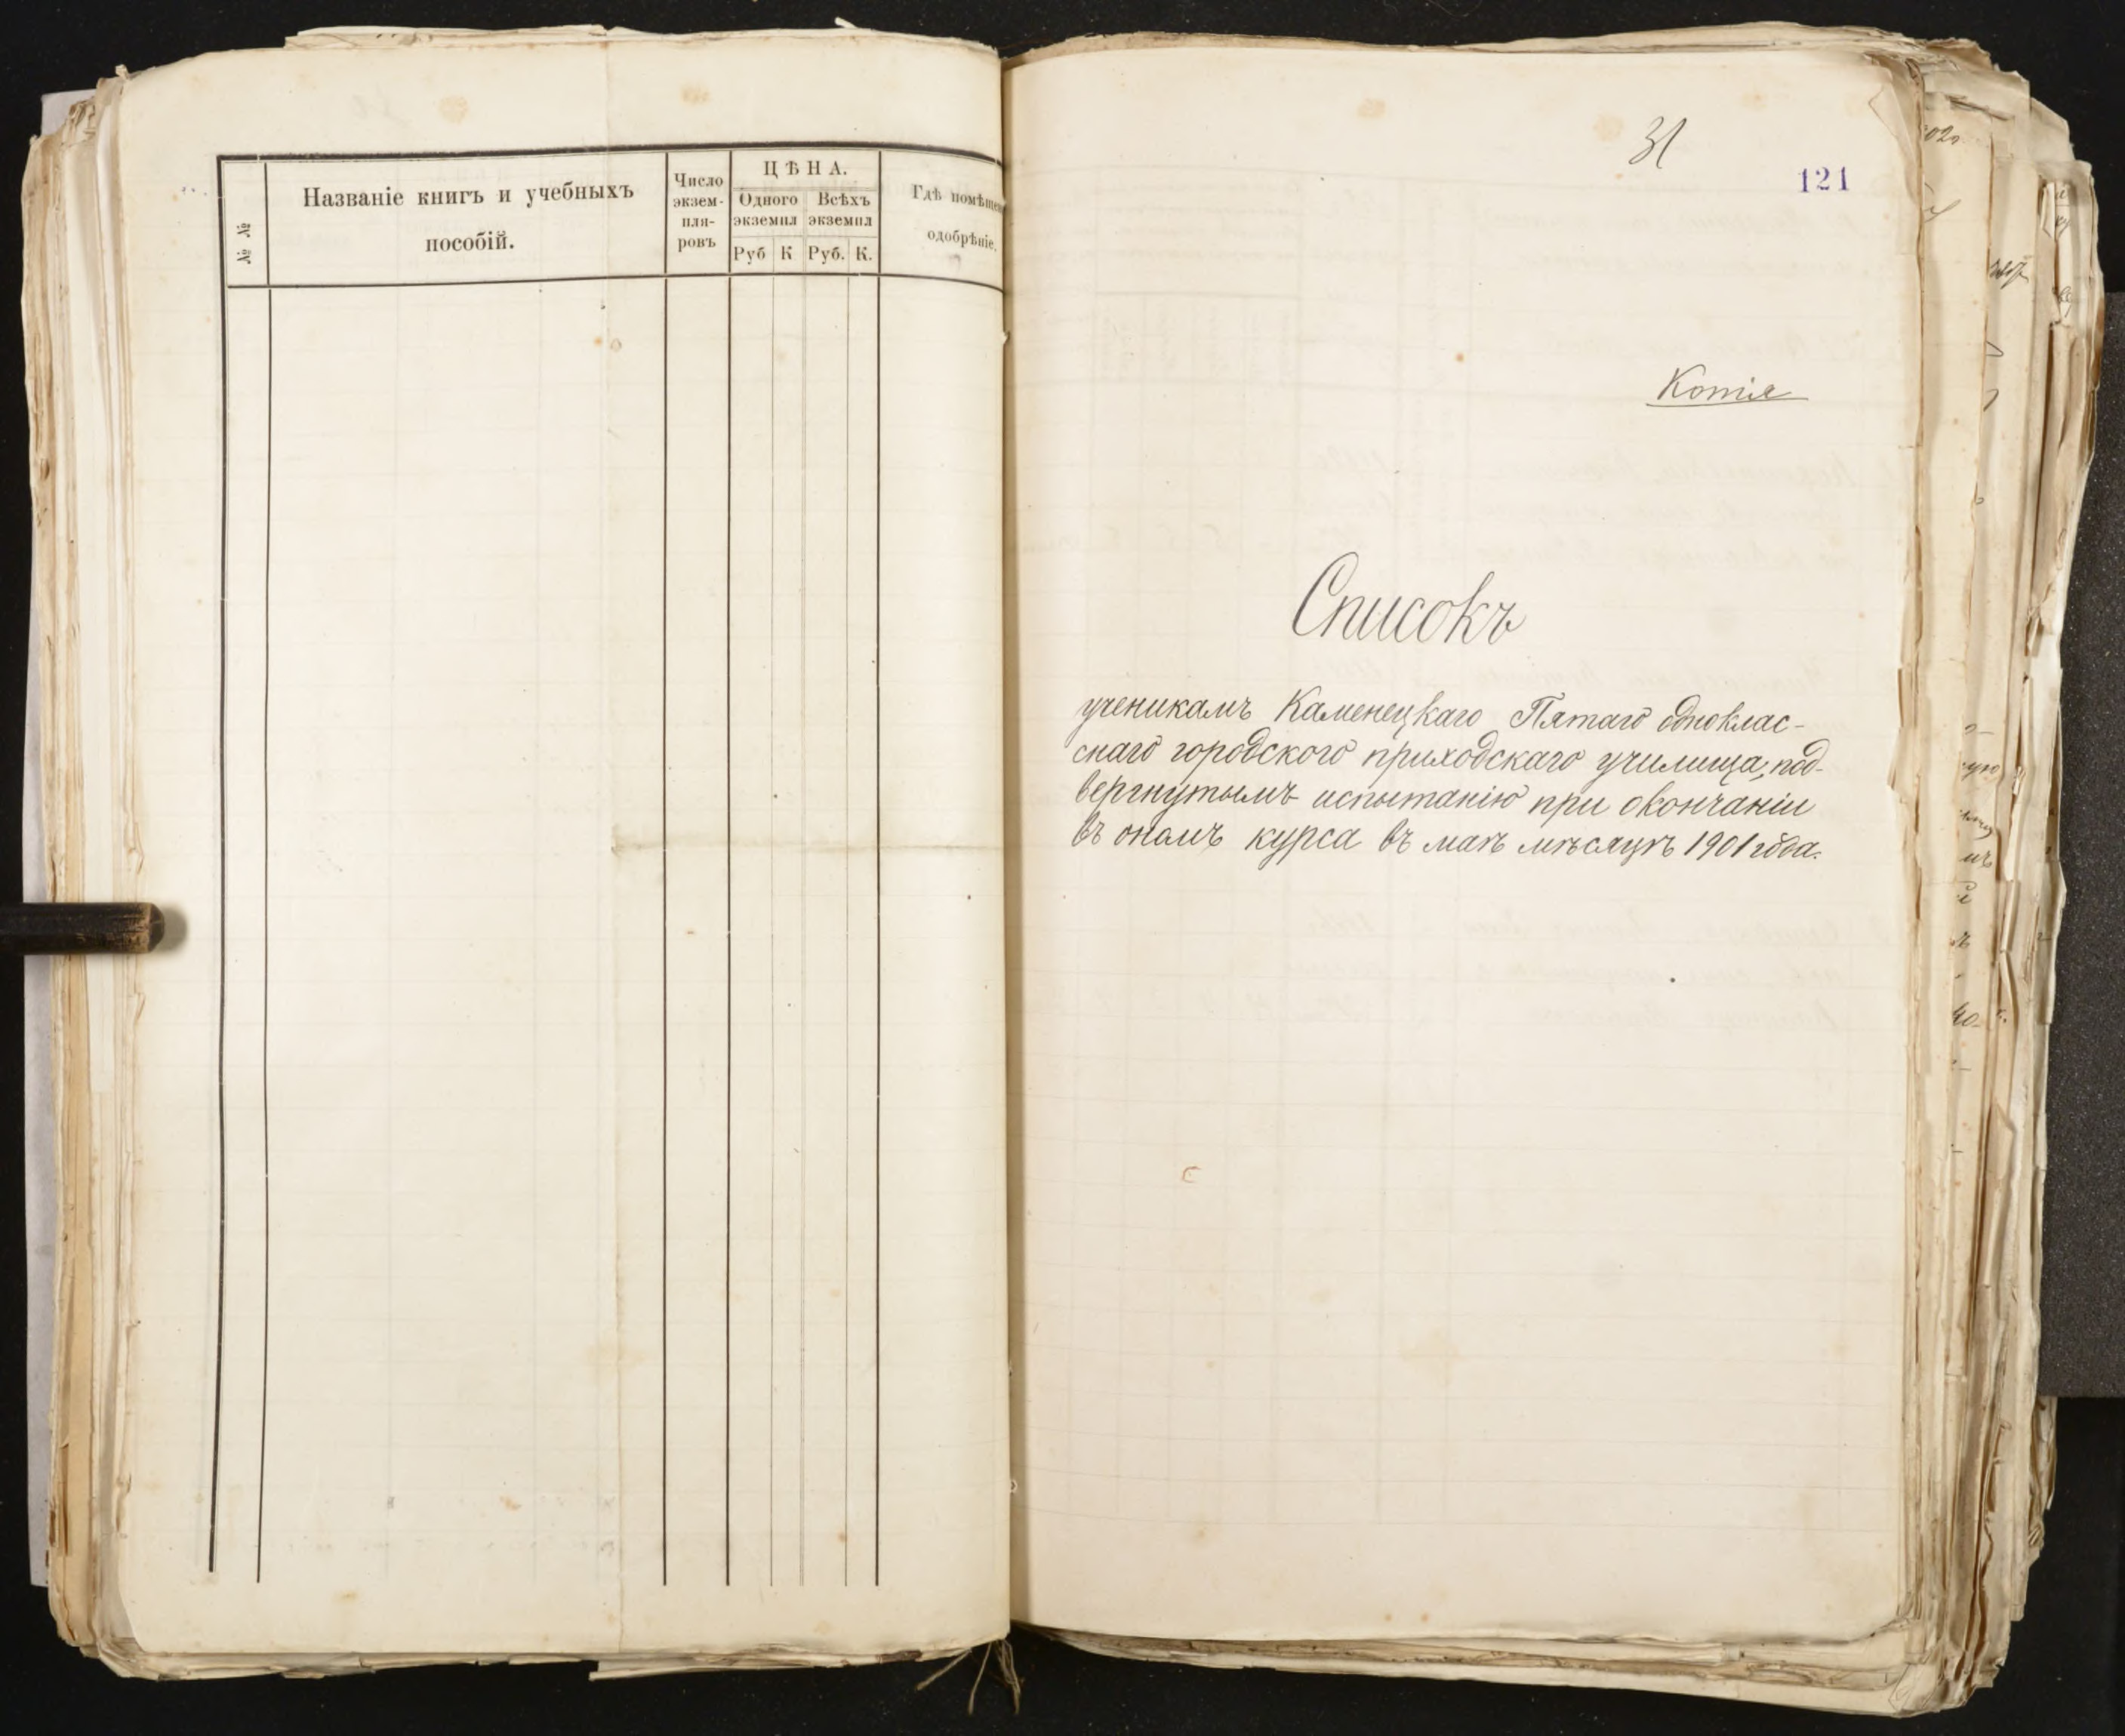 № №
Названіе книгъ и учебныхъ
пособій.
Число
экзем-
пля-
ровъ
ЦѢНА.
Одного
экземпл
Всѣхъ
экземпл
Руб
К
Руб.
К.
Гдѣ помѣщено
одобрѣніе.
31
121
Копія
Списокъ
ученикамъ Каменецкаго Пятаго одноклас-
снаго городского приходскаго училища, под-
вергнутымъ испытанію при окончаніи
въ ономъ курса въ маѣ мѣсяцѣ 1901 года.